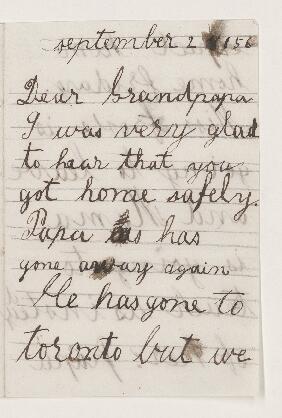 september 2 156
Dear Grandpapa
I was very glad
to hear that you
got home safely.
Papa has has
gone away again
He has gone to
toronto but we